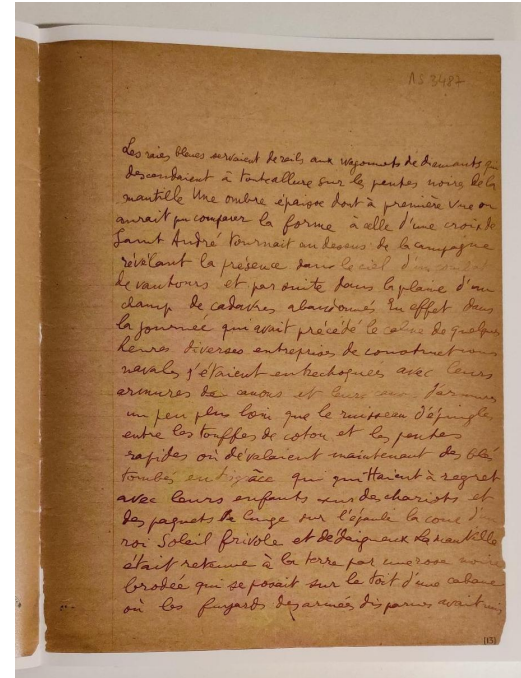 AS 3487
Les raies bleues servaient de rails aux wagonnets de diamants qui
descendaient à toute allure sur les pentes noires de la
mantille Une ombre épaisse dont à première vue on
aurait pu comparer la forme à celle d'une croix de
Saint André tournait au dessus de la campagne
révélant la présence dans le ciel d'un combat
de vautours et par suite dans la plaine d'un
champ de cadavres abandonnés En effet dans
la journée qui avait précédé le calme de quelques
heures diverses entreprises de constructions
navales s'étaient entrechoquées avec leurs
armures de et leurs
un peu plus loin que le ruisseau d'épingles
entre les touffes de coton et les pentes
rapides où dévalaient maintenant des blés
tombés en disgrâce qui quittaient à regret
avec leurs enfants sur des chariots et
des paquets de linge sur l'épaule la cour d'un
roi Soleil frivole et dédaigneux La mantille
était retenue à la terre par une rose noire
brodée qui se posait sur le toit d'une cabane
où les fuyards des armées disparues avaient mis
[13]